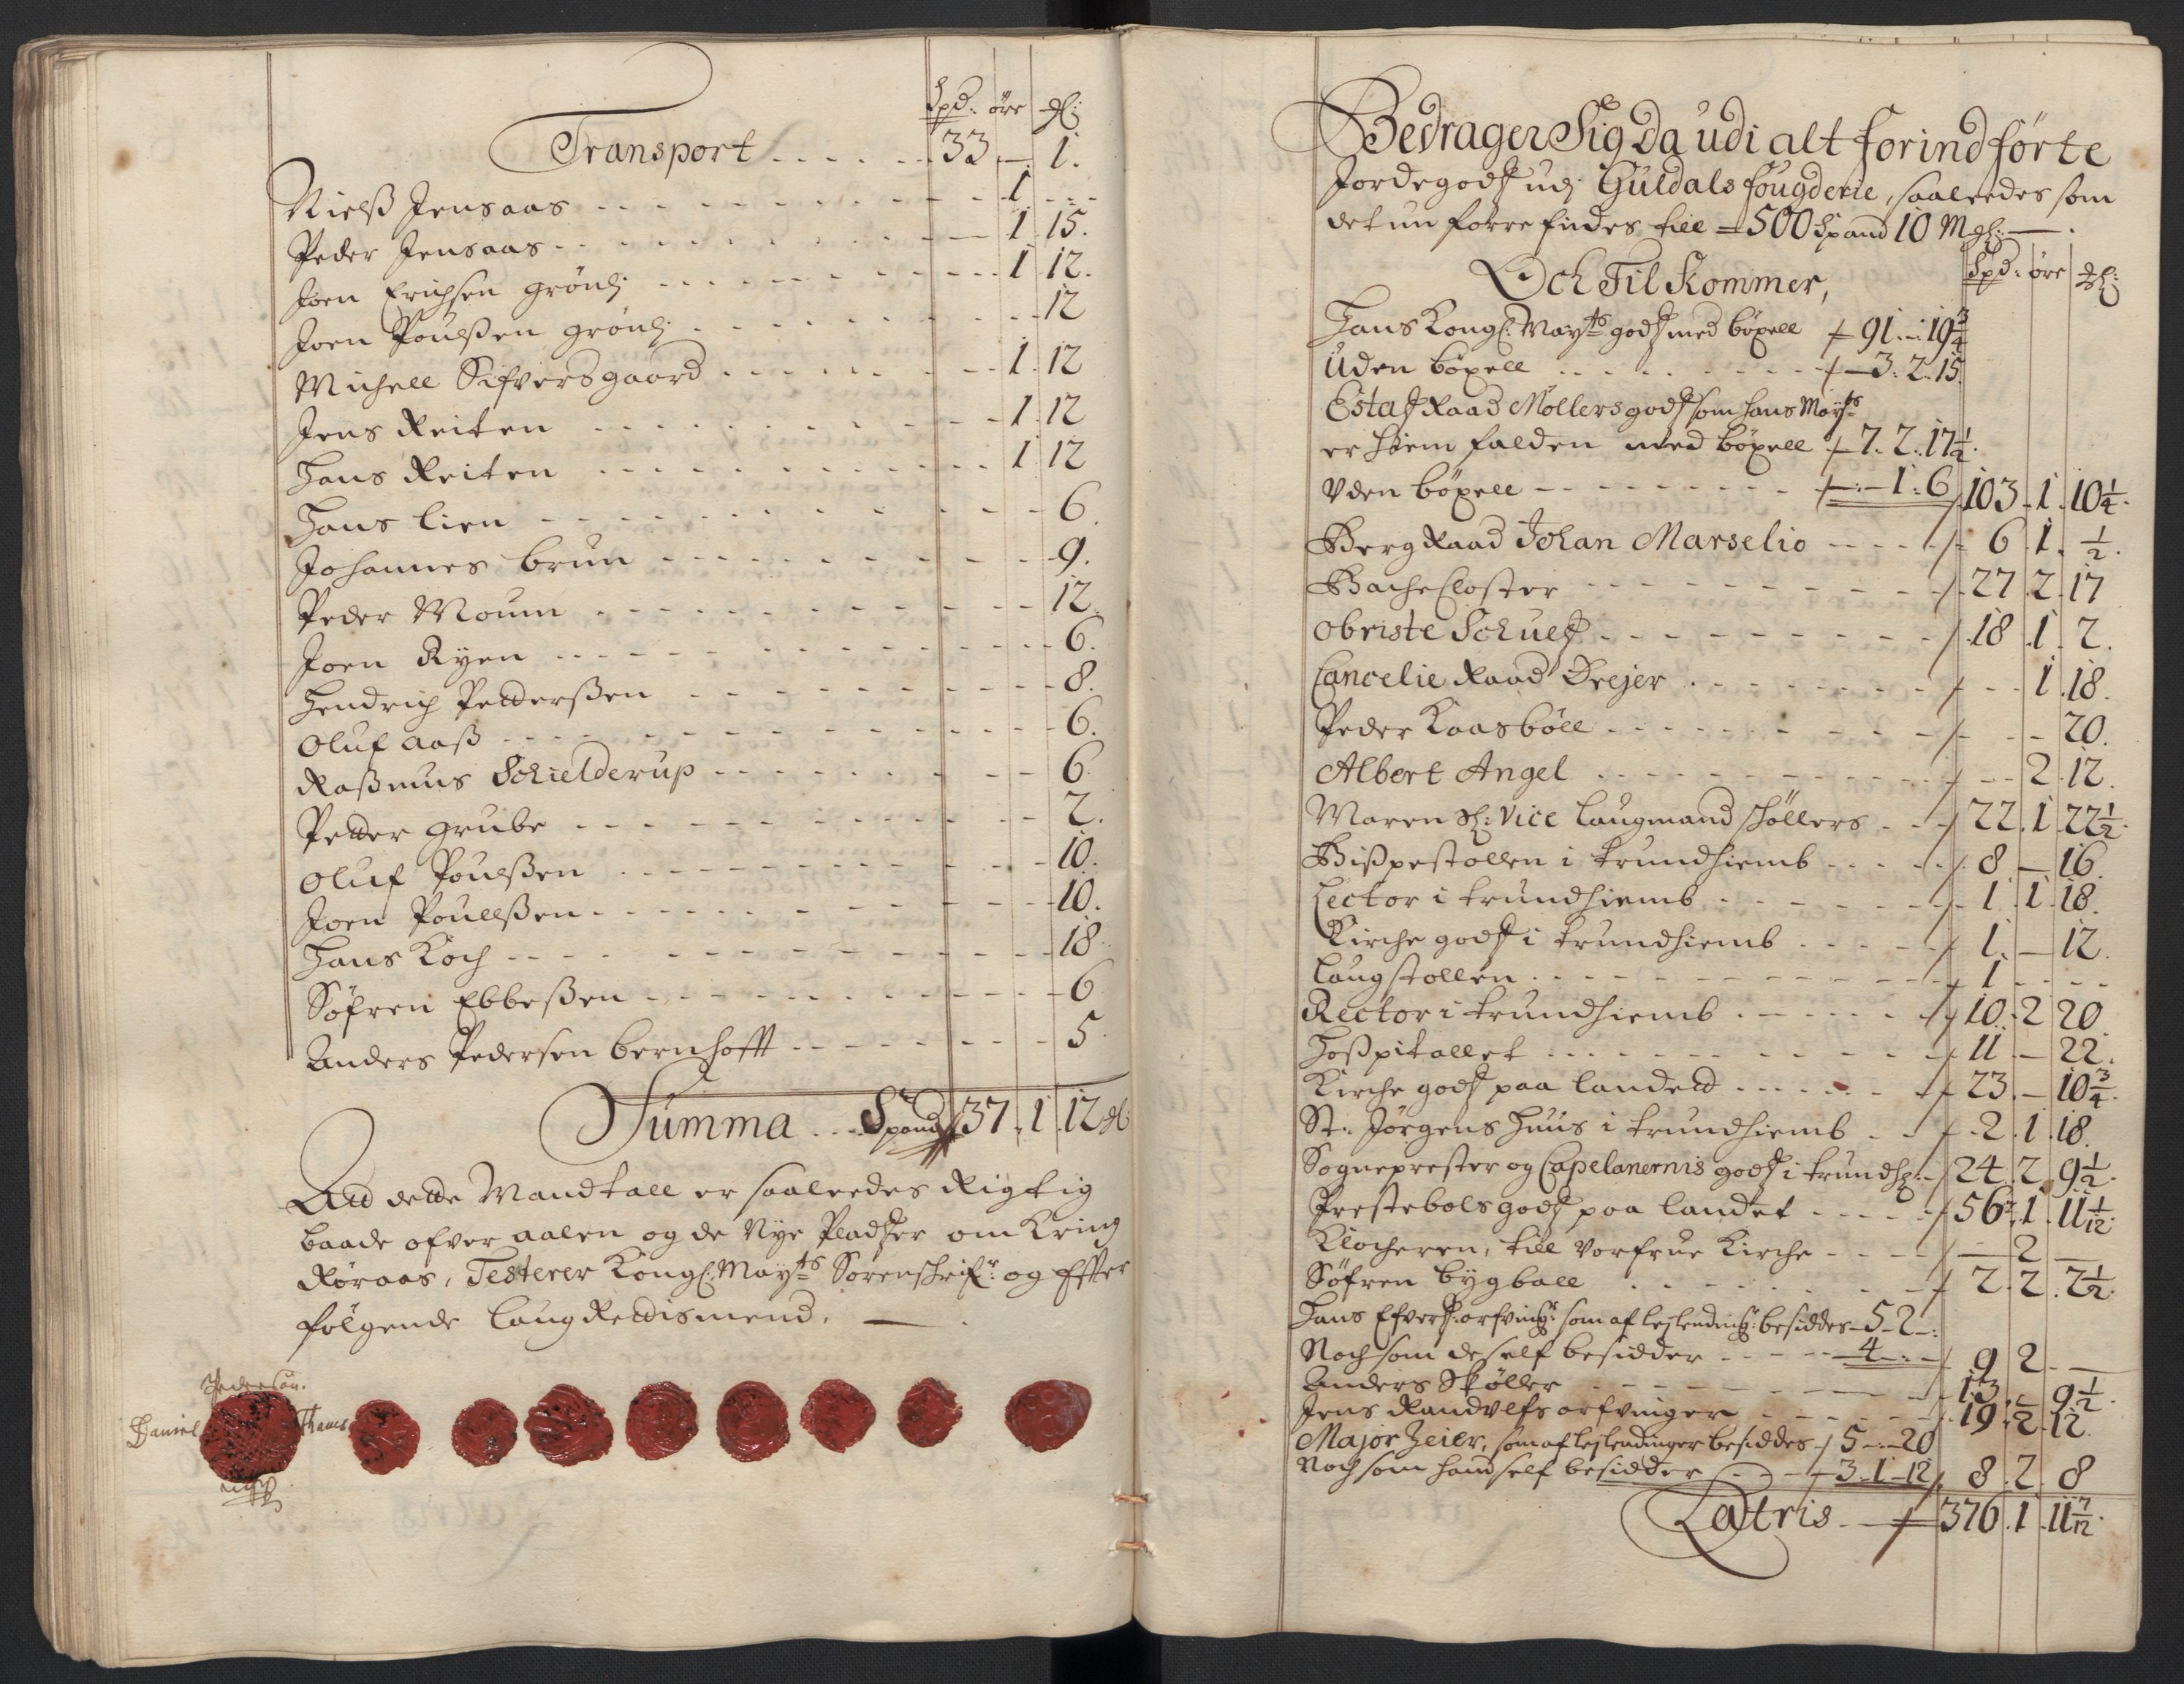 Spd: öre ℳl:
Transport . . . . . . 33 — 1.
Nielß Jensaas - - - - 1 - - -
Peder Jensaas - - - - 1 15.
Joen Erichsen grönlj - - - - 1 12.
Joen Poulßen grönlj - - - - 12
Michell Sifversgaard - - - - 1 12
Jens Reiten - - - - 1 12
Hans Reiten - - - - 1 12
Hans lien - - - - 6.
Johannes brun - - - - 9.
Peder Moum - - - - 12.
Joen Ryen - - - - 6.
Hendrich Pedderßen - - - - 8.
Oluf aaß - - - - 6.
Raßmus Schielderup - - - - 6
Petter grube - - - - 2.
Oluf Poulßen - - - - 10.
Joen Poullßen - - - - 10.
Hans Koch - - - - 18
Söfren Ebbeßen - - - - 6
Anders Pedersen bernhofft - - - - 5
Summa . . . Spand 37 . 1 . 12 ℳl
Att dette Mandtall er saaleedes Rigtig
baade ofver aalen og de Nye Pladtzer omkring
Röraas, Testerer Kongl: Mayts Sorenschrifr: og effter
fölgende laugRettismend. —
Pedersøn.
Daniel Thams
Bedrager Sig da udi alt forindförte
Jordegodtz udj Guldals fougderie, saaleedes som
det nu forre findes till = 500 Spand 10 Mgl: — .
Och Til Kommer, Spd: öre ℳl:
Hans Kongl: Mayts godtz med böxell 91 . - . 19 3/4
Uden böxell - - - - 3 . 2 . 15.
Estatz Raad Möllers godtz som hans Mayts
er hiem falden med böxell 7 . 2 . 17 1/2.
Uden böxell - - - - 1 : 6 103 . 1 . 10 1/4.
Berg Raad Johan Marselio - - - - 6 . 1 . 1/2.
Bache Closter - - - - 27 . 2 . 17
Obriste Schultz - - - - 18 . 1 . 2.
Cancelie Raad Drejer - - - - 1 . 18.
Peder Kaasböll - - - - 20.
Albert Angel - - - - 2 . 12.
Maren Sl: Vice laugmand Schöllers - - 22 . 1 . 22 1/2.
Bißpestollen i trundhiemb - - - - 8 . — 16.
Lector i trundhiemb - - - - 1 . 1 . 18.
Kirche godtz i trundhiemb - - - - 1 . — 12.
Laugstollen - - - - 1 - - -
Rector i trundhiemb - - - - 10 . 2 20
Hoßpitallet - - - - 11 — 22.
Kirche godtz paa landed - - - - 23 . — 10 3/4.
St: Jörgens Huus i trundhiemb - - 2 . 1 . 18.
Sogneprester og Capelanernis godtz i trundhl: - 24 . 2 . 9 1/2.
Prestebols godtz paa landet - - - - 56 . 1 . 11 1/12.
Klocheren, till Vorfrue Kirche - - - - — 2 —
Söfren bygball - - - - 2 . 2 . 2 1/2.
Hans Efvertz: arfving: som af leylending: besiddes - 5 - 2 - :
Noch som de self besidder - - - - 4 - : - 9 2 - —
Anders Skøller - - - - 13 . — 9 1/2.
Jens Randulfs arfvinger - - - - 19 . 2 . 12.
Major Zeier, som af leylendinger besiddes 5 - : - 20
Noch som hand self besidder - - 3 - 1 - 12 8 . 2 . 8
Latris - 376 . 1 . 11 7/12.